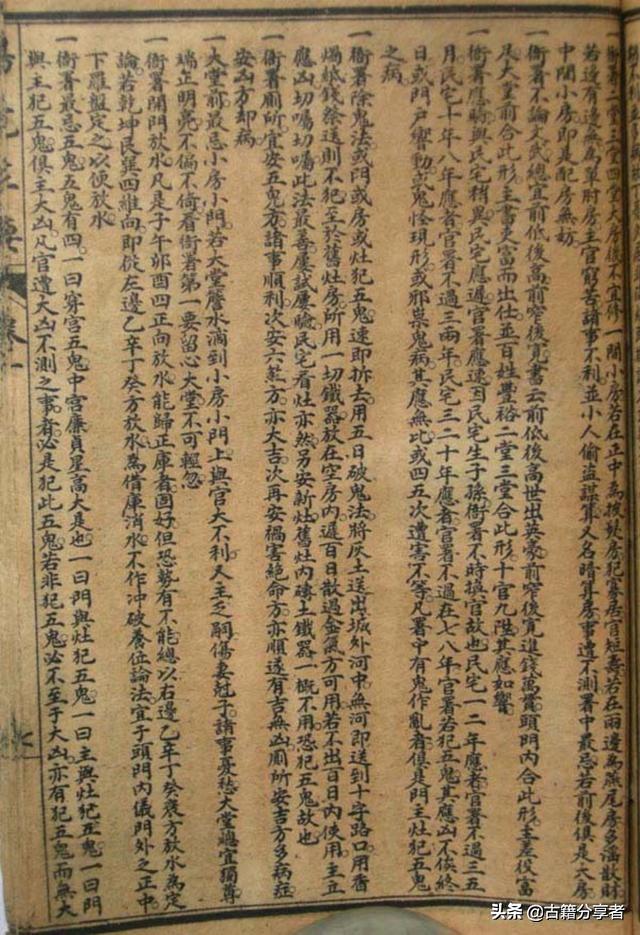 一衙署二堂三堂四堂大房後不宜得一間小房若在正中為後欸房犯寡居官短壽若在兩邊為燕尾房多滛散財
若邊有邊無為單肘房主官窮苦諸事不利並小人偷盜謀算又名暗算房事遭不測署中最忌若前後俱是大房
中間小房即是配房無妨
一衙署不論文武總宜前低後高前窄後寬書云前低後高世出英豪前窄後寬進錢萬貫頭門內合此形主差役富
足大堂前合此形主書吏富而出仕並百姓豐裕二堂三堂合此形十官九陞其應如響
一衙署應騐與民宅稍與民宅應遲官署應速因民宅生子孫衙署不時換官故也民宅一二年應者官署不過三五
月民宅十年八年應者官署不過三兩年民宅三二十年應者官署不過在七八年官署若犯五鬼其應凶不俟終
日或門戶響動或鬼怪現形或邪祟鬼病其應無比或四五次遭害不等凡署中有鬼作亂者俱是門主灶犯五鬼
之病
一衙署除鬼法或門或房或灶犯五鬼速即拆去用五日破鬼法將灰土送出城外河中無河即送到十字路口用香
燭紙錢祭送則不犯至於舊灶房所用一切鐵器放在空房內過百日散過金氣方可用若不出百日內使用主立
應凶切囑切囑此法最善屢試屢驗民宅看灶亦然另安新灶舊灶內磚土鐵器一概不用恐犯五鬼故也
一衙署廟所宜安五鬼方諸事順利次安六煞方亦大吉次再安禍害絕命方亦順遂有吉無凶廁所安吉方多病症
安凶方却病
一大堂前最忌小房小門若大堂簷水滴到小房小門上與官大不利又主乏嗣傷妻尅子諸事憂愁大堂總宜獨尊
端正明亮不偏不倚看衙署第一要留心大堂不可輕忽
一衙署開門放水凡是子午卯酉四正向放水能歸正庫者固好但恐勢有不能總以右邊乙辛丁癸衰方放水為定
論若乾坤艮巽四維向即從左邊乙辛丁癸方放水為借庫消水不作冲破養位論法宜于頭門內儀門外之正中
下羅盤定之以便放水
一衙署最忌五鬼五鬼有四一曰穿宮五鬼中宮廉貞星高大是也一曰門與灶犯五鬼一曰主與灶犯五鬼一曰門
與主犯五鬼俱主大凶凡官遭大凶不測之事者必是犯此五鬼若非犯五鬼必不至于大凶亦有犯五鬼而無大
头条 @古籍分享者